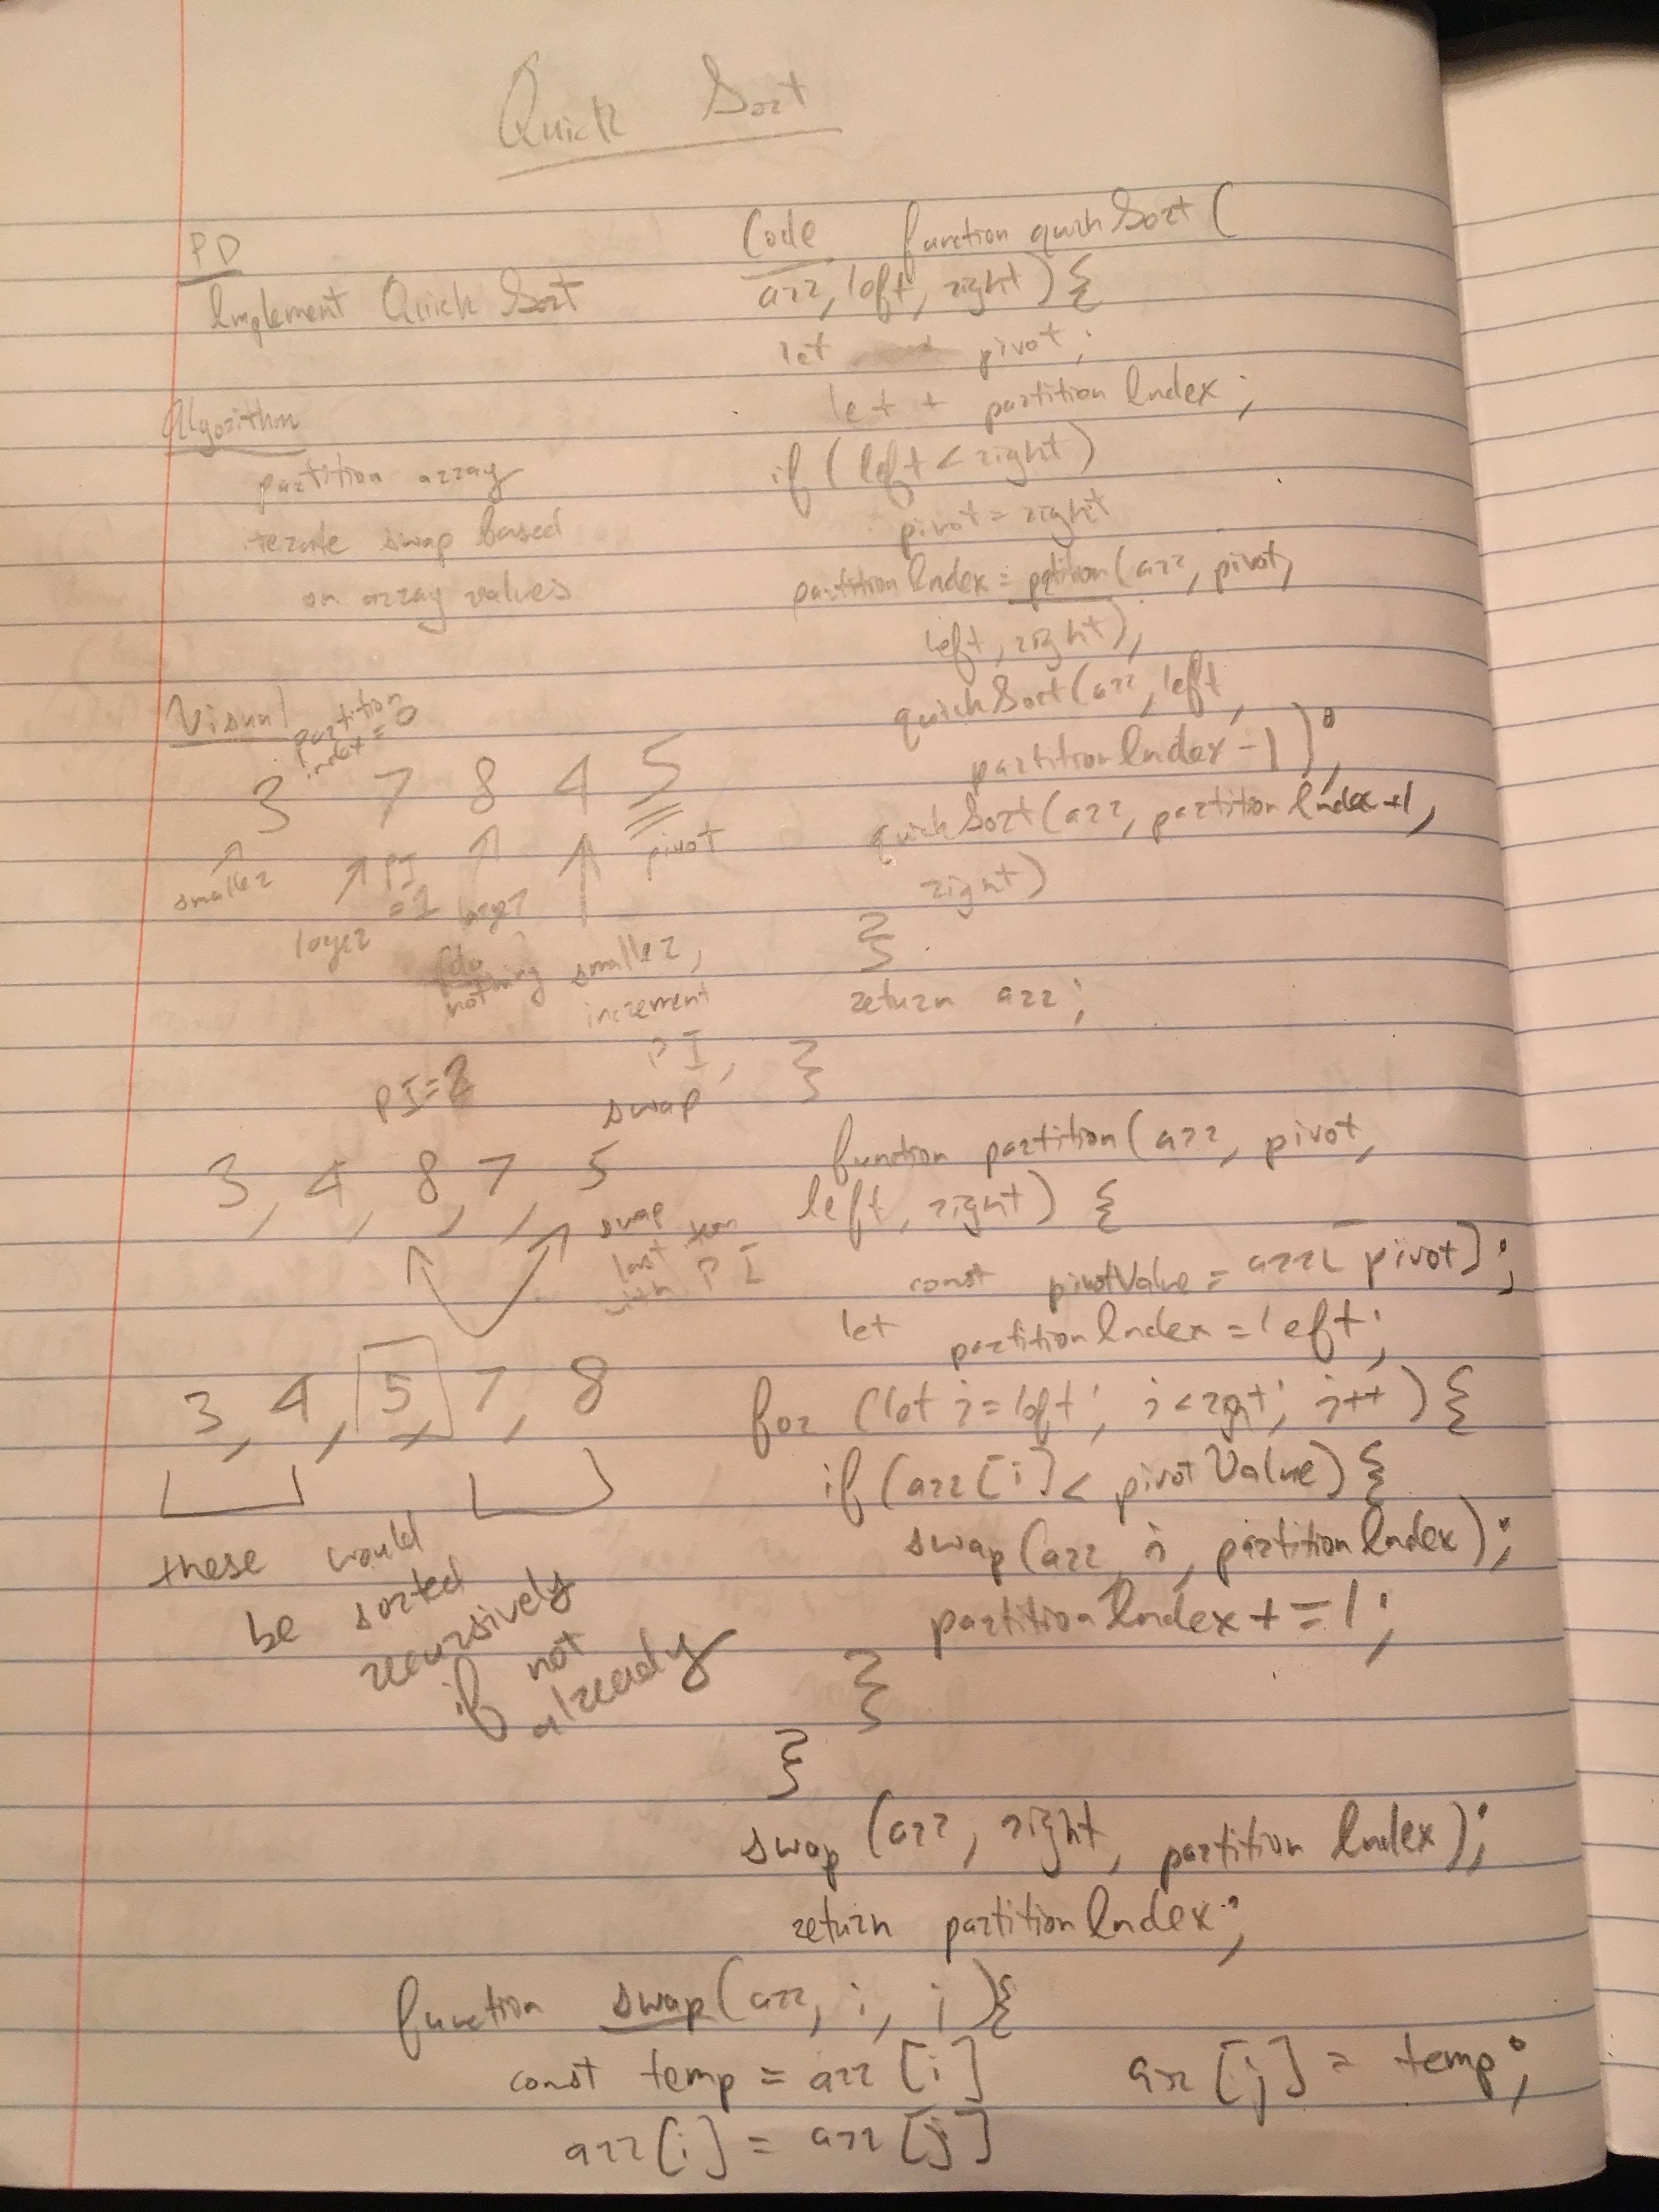 Quick Sort
PD
Implement Quick Sort
Algorithm
partition array
iterate swap based
on array values
Visual
partition
index = 0
3 7 8 4 5
smaller
larger
PI
= 1
larger
(do
nothing
smaller,
increment
PI,
swap
pivot
PI=2
3, 4, 8, 7, 5
swap
last item
with PI
3, 4, 5, 7, 8
these would
be sorted
recursively
if not
already
Code function quickSort(
arr, left, right) {
let pivot;
let partitionIndex;
if (left < right)
pivot = right
partitionIndex = partition(arr, pivot,
left, right);
quickSort(arr, left,
partitionIndex - 1);
quickSort(arr, partitionIndex +1,
right)
}
return arr;
}
function partition(arr, pivot,
left, right) {
const pivotValue = arr[pivot];
let partitionIndex = left;
for (let i = left; i < right; i++) {
if (arr[i] < pivotValue) {
swap(arr, i, partitionIndex);
partitionIndex += 1;
}
}
swap(arr, right, partitionIndex);
return partitionIndex;
function swap(arr, i, j){
const temp = arr[i]
arr[i] = arr[j]
arr[j] = temp;